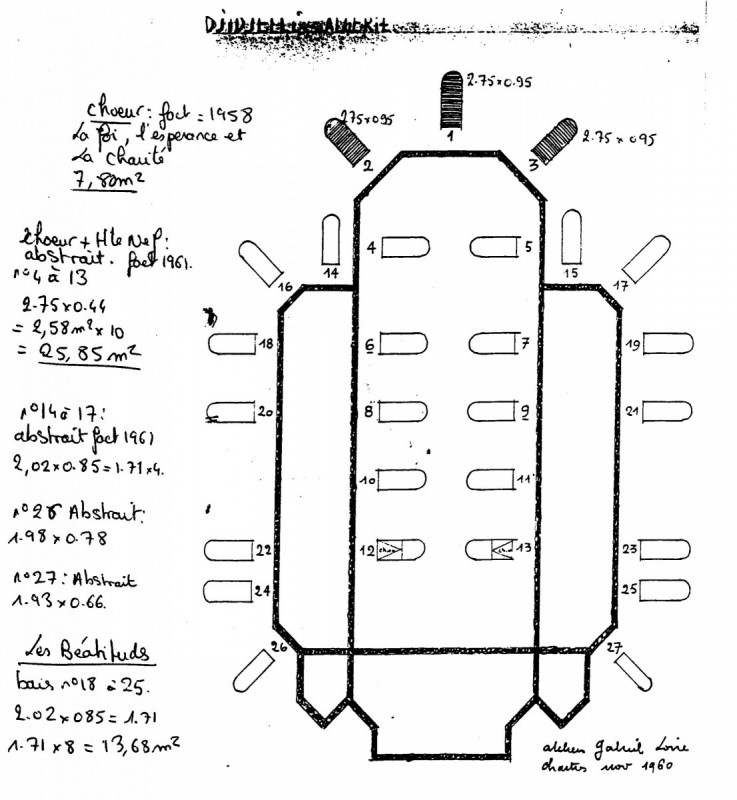 choeur: fact = 1958
La foi, l'esperance et
La charité
7,80m²
Choeur + Hte Nef:
abstrait. fact 1961.
n°4 à 13
2.75x0.44
= 2,58m²x10
= 25,85m²
n°14 à 17:
abstrait fact 1961
2,02x0.85=1.71x4.
n°26 Abstrait:
1.98 x 0.78
n°27: Abstrait
1.93 x 0.66.
Les Béatituds
bais n°18 à 25.
2.02 x 085 = 1.71
1.71 x 8 = 13,68m²
2.75x0.95
275x095
2.75 x 095
1
2
3
4
5
14
15
16
17
18
6
7
19
20
8
9
21
10
11
12
13
22
23
24
25
26
27
atelier Gabriel Loire
chartres nov 1960